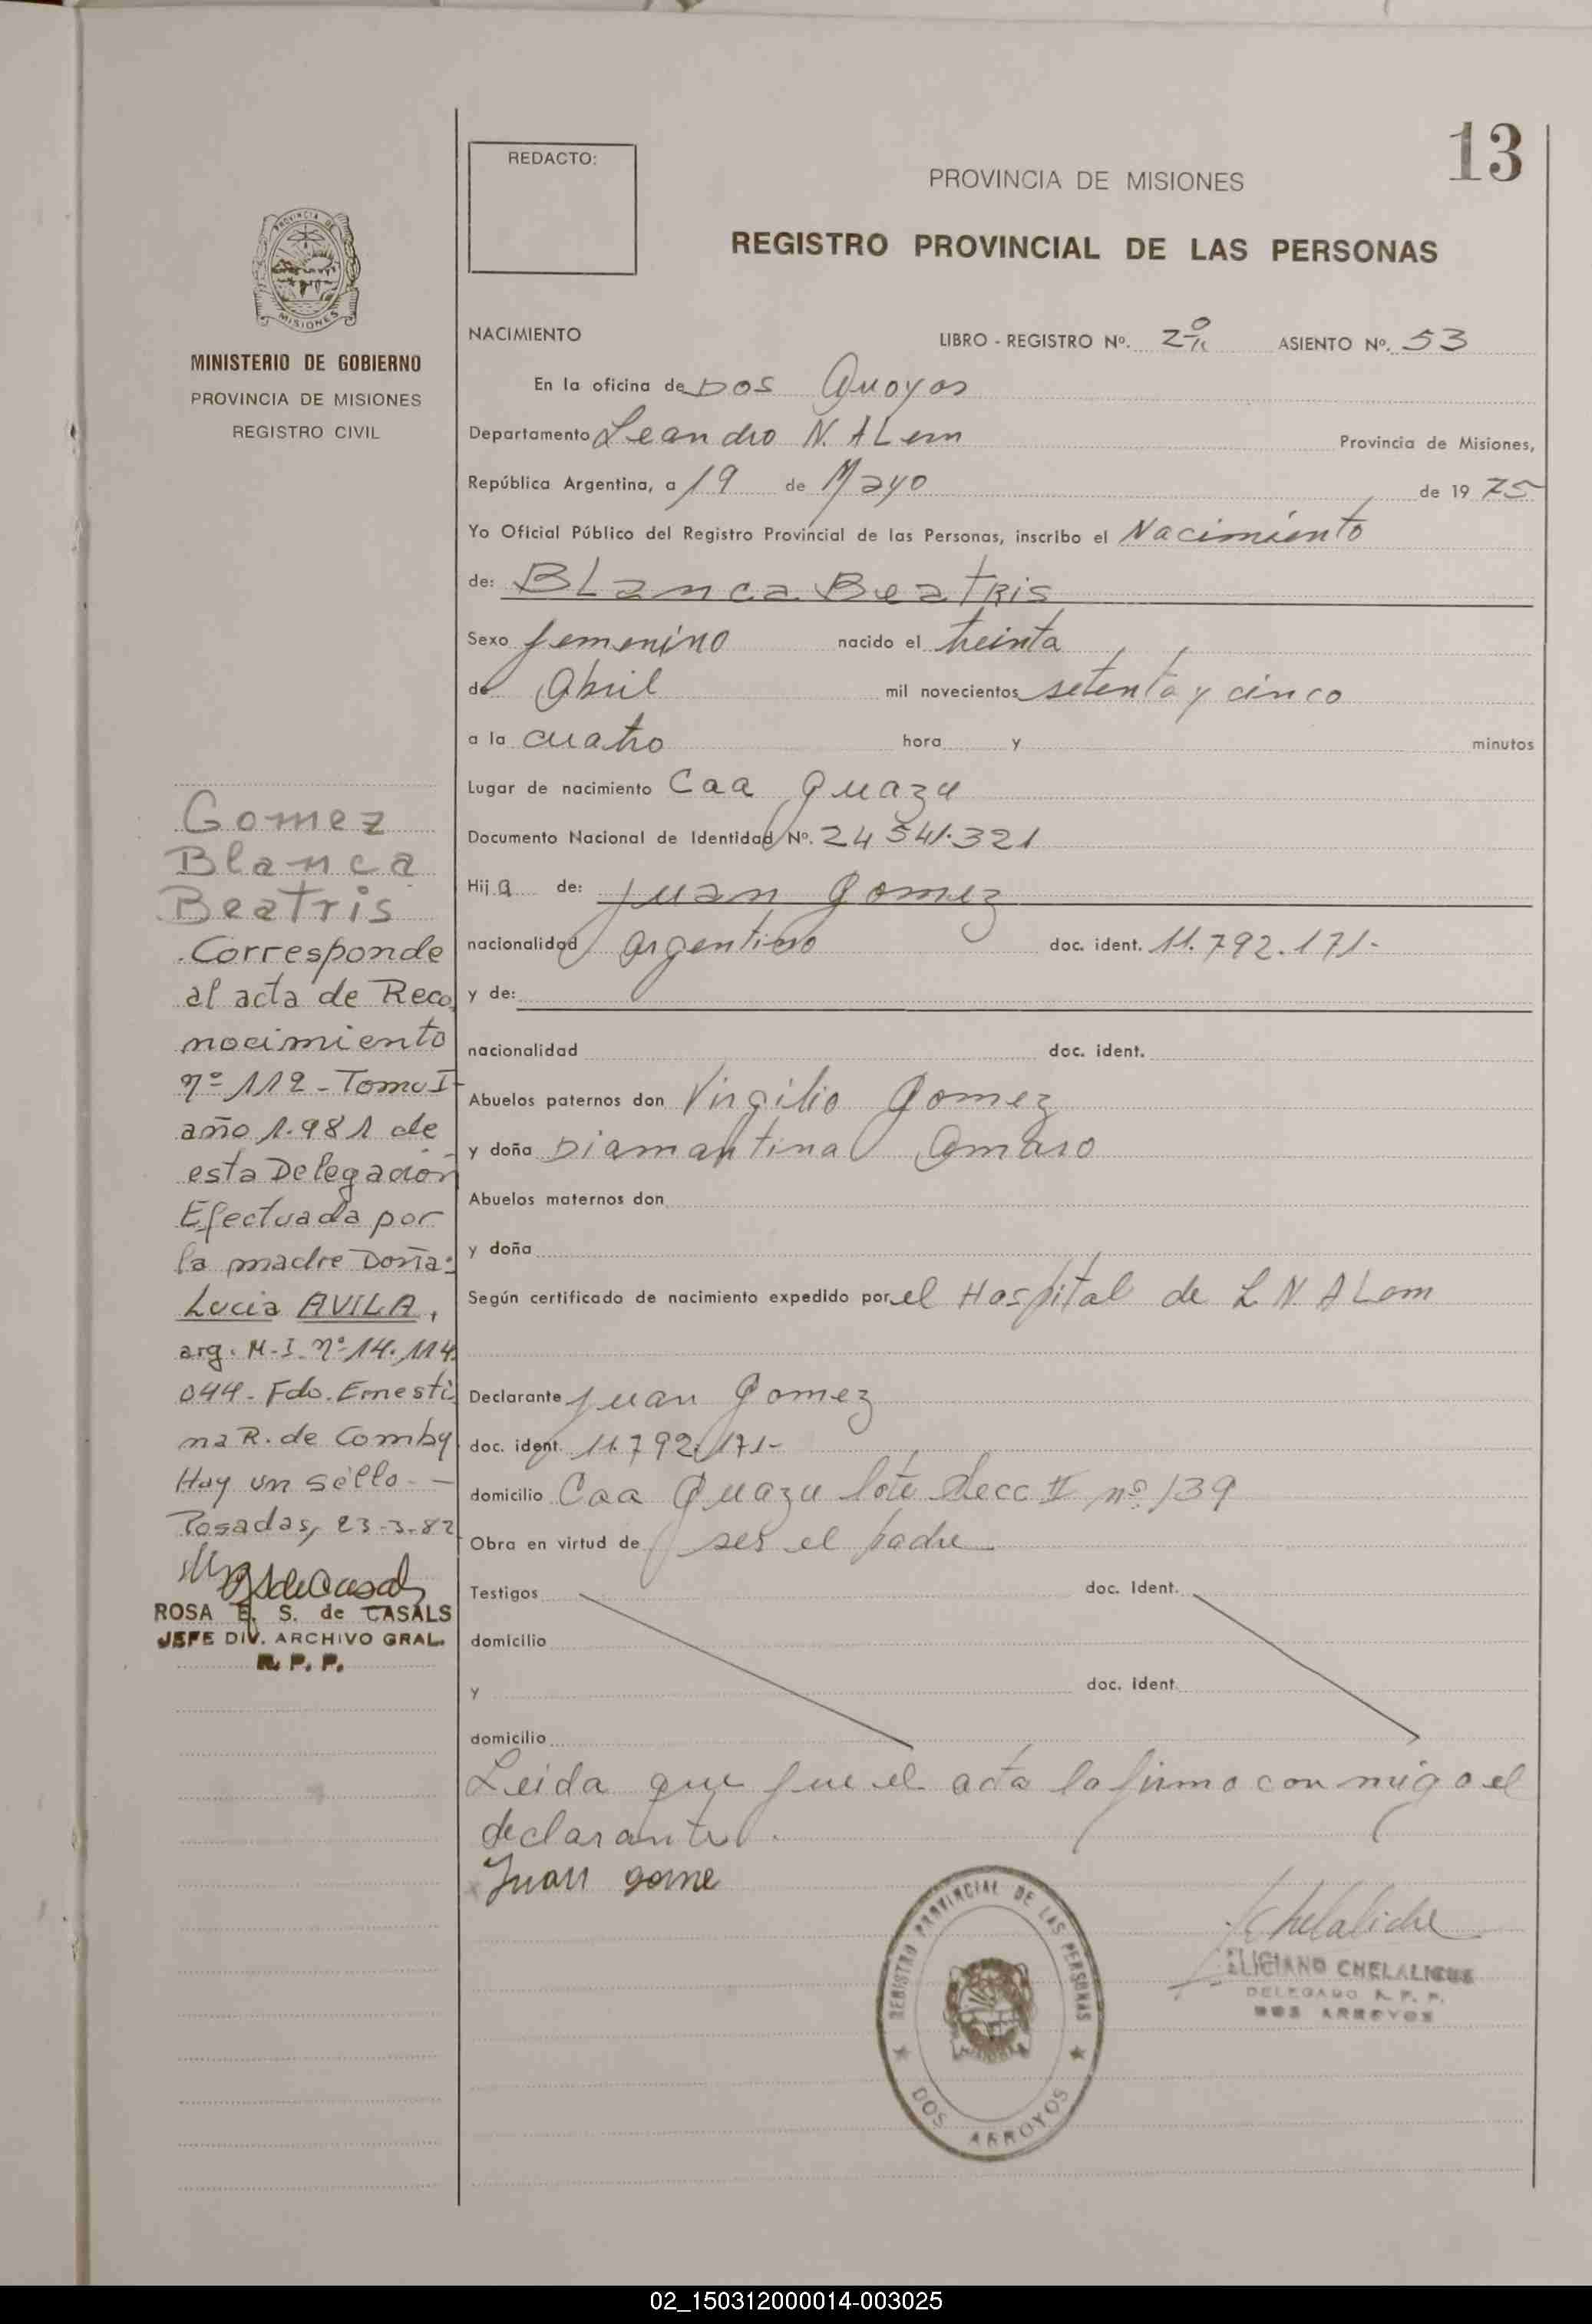 13
REDACTO:
PROVINCIA DE MISIONES
REGISTRO PROVINCIAL DE LAS PERSONAS
PROVINCIA DE
MISIONES
MINISTERIO DE GOBIERNO
PROVINCIA DE MISIONES
REGISTRO CIVIL
NACIMIENTO LIBRO - REGISTRO Nº. 2º ASIENTO Nº. 53
En la oficina de Dos Arroyos
Departamento Leandro N. ALem Provincia de Misiones,
República Argentina, a 19 de Mayo de 19 75
Yo Oficial Público del Registro Provincial de las Personas, inscribo el Nacimiento
de: BLanca Beatris
Sexo femenino nacido el treinta
de Abril mil novecientos setenta y cinco
a la cuatro hora y minutos
Lugar de nacimiento Caa Guazu
Documento Nacional de Identidad Nº. 24 541.321
Hij a de: Juan Gomez
nacionalidad argentino doc. ident. 11.792.171-
y de:
nacionalidad doc. ident.
Abuelos paternos don Virgilio Gomez
y doña Diamantina Amaro
Abuelos maternos don
y doña
Según certificado de nacimiento expedido por el Hospital de L N ALem
Declarante Juan Gomez
doc. ident. 11.792.171-
domicilio Caa Guazu lote Secc II nº 139
Obra en virtud de ser el padre
Testigos doc. Ident.
domicilio
y doc. ident.
domicilio
Leida que fue el acta la firmo con migo el
declarante.
Juan gome
Gomez
Blanca
Beatris
Corresponde
al acta de Reco
nocimiento
nº 112 - Tomo I
año 1.981 de
esta Delegación
Efectuada por
la madre Doña:
Lucia AVILA,
arg. M.I. nº 14.114.
044 - Fdo. Ernesti
na R. de Comby
Hay un sello. -
Posadas, 23-3-82
ROSA E. S. de CASALS
JEFE DIV. ARCHIVO GRAL.
R. P. P.
REGISTRO PROVINCIAL DE LAS PERSONAS
DOS ARROYOS
Chelaliche
ELICIANO CHELALICHE
DELEGADO R. P. P.
DOS ARROYOS
02_150312000014-003025